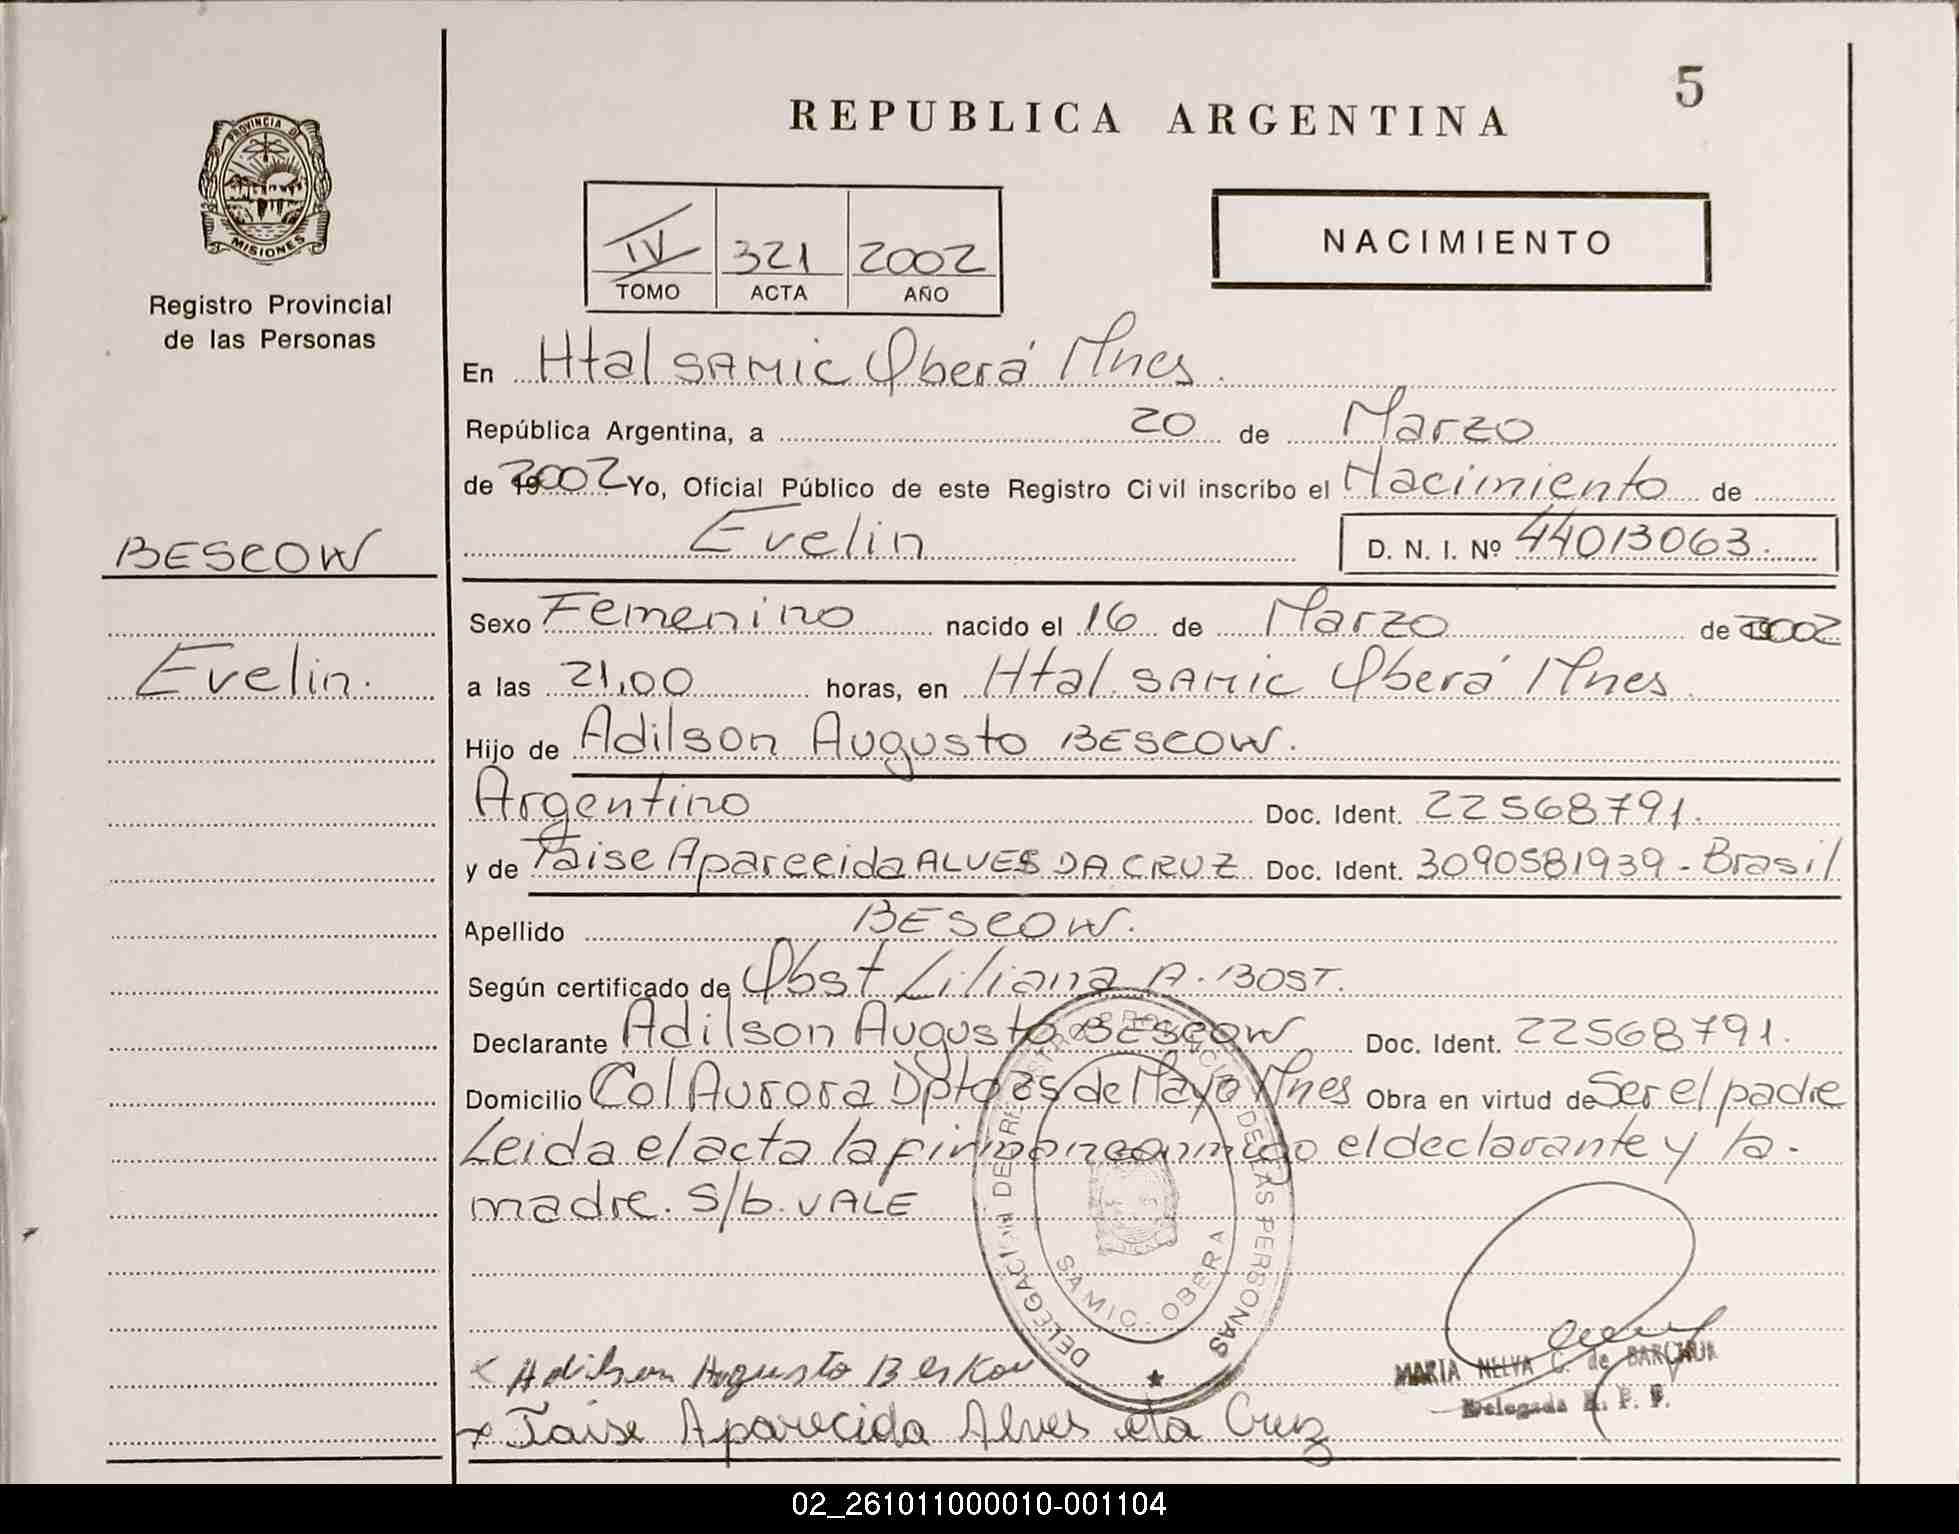 5
REPUBLICA ARGENTINA
PROVINCIA DE
MISIONES
Registro Provincial
de las Personas
IV 321 2002
TOMO ACTA AÑO
NACIMIENTO
En Htal SAMIC Oberá Mnes.
República Argentina, a 20 de Marzo
de 2002 Yo, Oficial Público de este Registro Civil inscribo el Nacimiento de
Evelin D. N. I. Nº 44013063.
BESCOW
Evelin.
Sexo Femenino nacido el 16 de Marzo de 2002
a las 21,00 horas, en Htal. SAMIC Oberá Mnes.
Hijo de Adilson Augusto BESCOW.
Argentino Doc. Ident. 22568791.
y de Taise Aparecida ALVES DA CRUZ Doc. Ident. 3090581939 - Brasil
Apellido BESCOW.
Según certificado de Obst Liliana A. BOST.
Declarante Adilson Augusto BESCOW Doc. Ident. 22568791.
Domicilio Col Aurora Dpto 25 de Mayo Mnes Obra en virtud de Ser el padre
Leida el acta la firman conmigo el declarante y la
madre. S/b. VALE
DELEGACION DEL REGISTRO PROVINCIAL DE LAS PERSONAS
SAMIC - OBERA
x Adilson Augusto Beskow
x Taise Aparecida Alves da Cruz
MARIA NELVA C. de BARCHUK
Delegada R. P. P.
02_261011000010-001104